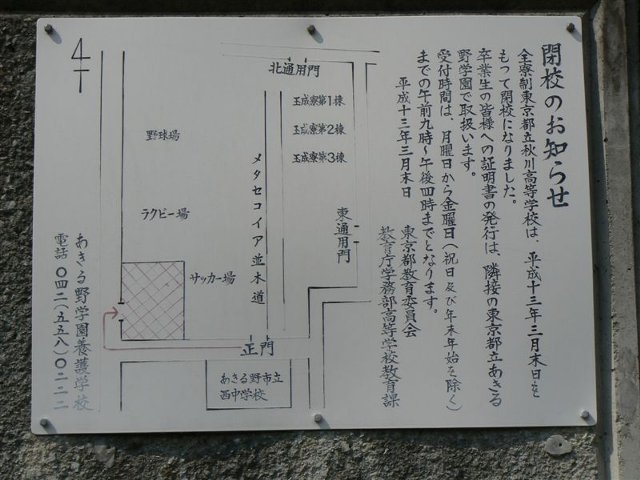 閉校のお知らせ
全寮制東京都立秋川高等学校は、平成十三年三月末日を
もって閉校になりました。
卒業生の皆様への証明書の発行は、隣接の東京都立あきる
野学園で取扱います。
受付時間は、月曜日から金曜日(祝日及び年末年始を除く)
までの午前九時~午後四時までとなります。
平成十三年三月末日
東京都教育委員会
教育庁学務部高等学校教育課
4
北通用門
玉成寮第1棟
玉成寮第2棟
玉成寮第3棟
野球場
ラクビー場
サッカー場
メタセコイア並木道
東通用門
正門
あきる野市立
西中学校
あきる野学園養護学校
電話 〇四二(五五八)〇二二二